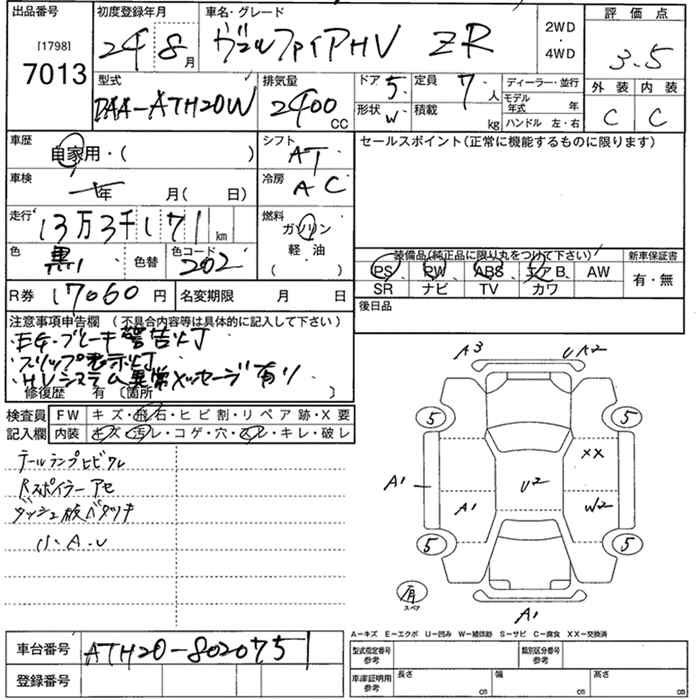 出品番号 初度登録年月 車名・グレード 2WD 評価点
[1798] 24 8 月 ヴェルファイアHV ZR ・ 4WD 3.5
7013
型式 排気量 ドア 5 定員 7 人 ディーラー・並行 外装 内装
DAA-ATH20W 2400 CC 形状 W 積載 kg モデル年式 年 C C
ハンドル 左・右
車歴 自家用・( ) シフト AT セールスポイント(正常に機能するものに限ります)
車検 年 月( 日) 冷房 AC
走行 13万3千171 km 燃料 ガソリン
色 黒 色替 色コード 202 軽・油 ( )
装備品(純正品に限り丸をつけて下さい) 新車保証書
PS PW ABS エアB AW 有・無
SR ナビ TV カワ
R券 17060 円 名変期限 月 日 後日品
注意事項申告欄 (不具合内容等は具体的に記入して下さい)
・EG・ブレーキ警告灯
・スリップ表示灯
・HVシステム異常メッセージ有り
修復歴 有 〔箇所 〕
検査員 FW キズ・飛石・ヒビ割・リペア跡・X要
記入欄 内装 キズ・汚レ・コゲ・穴・スレ・キレ・破レ
テールランプヒビワレ
Rスポイラーアセ
ダッシュ板ベタツキ
小A.U
A3 UA2
5 5
XX
A1 U2
A1 W2
5 5
有
スペア
A1
A-キズ E-エクボ U-凹み W-補修跡 S-サビ C-腐食 XX-交換済
車台番号 ATH20-8020751 型式指定番号 参考 類別区分番号 参考
登録番号 車庫証明用 参考 長さ cm 幅 cm 高さ cm